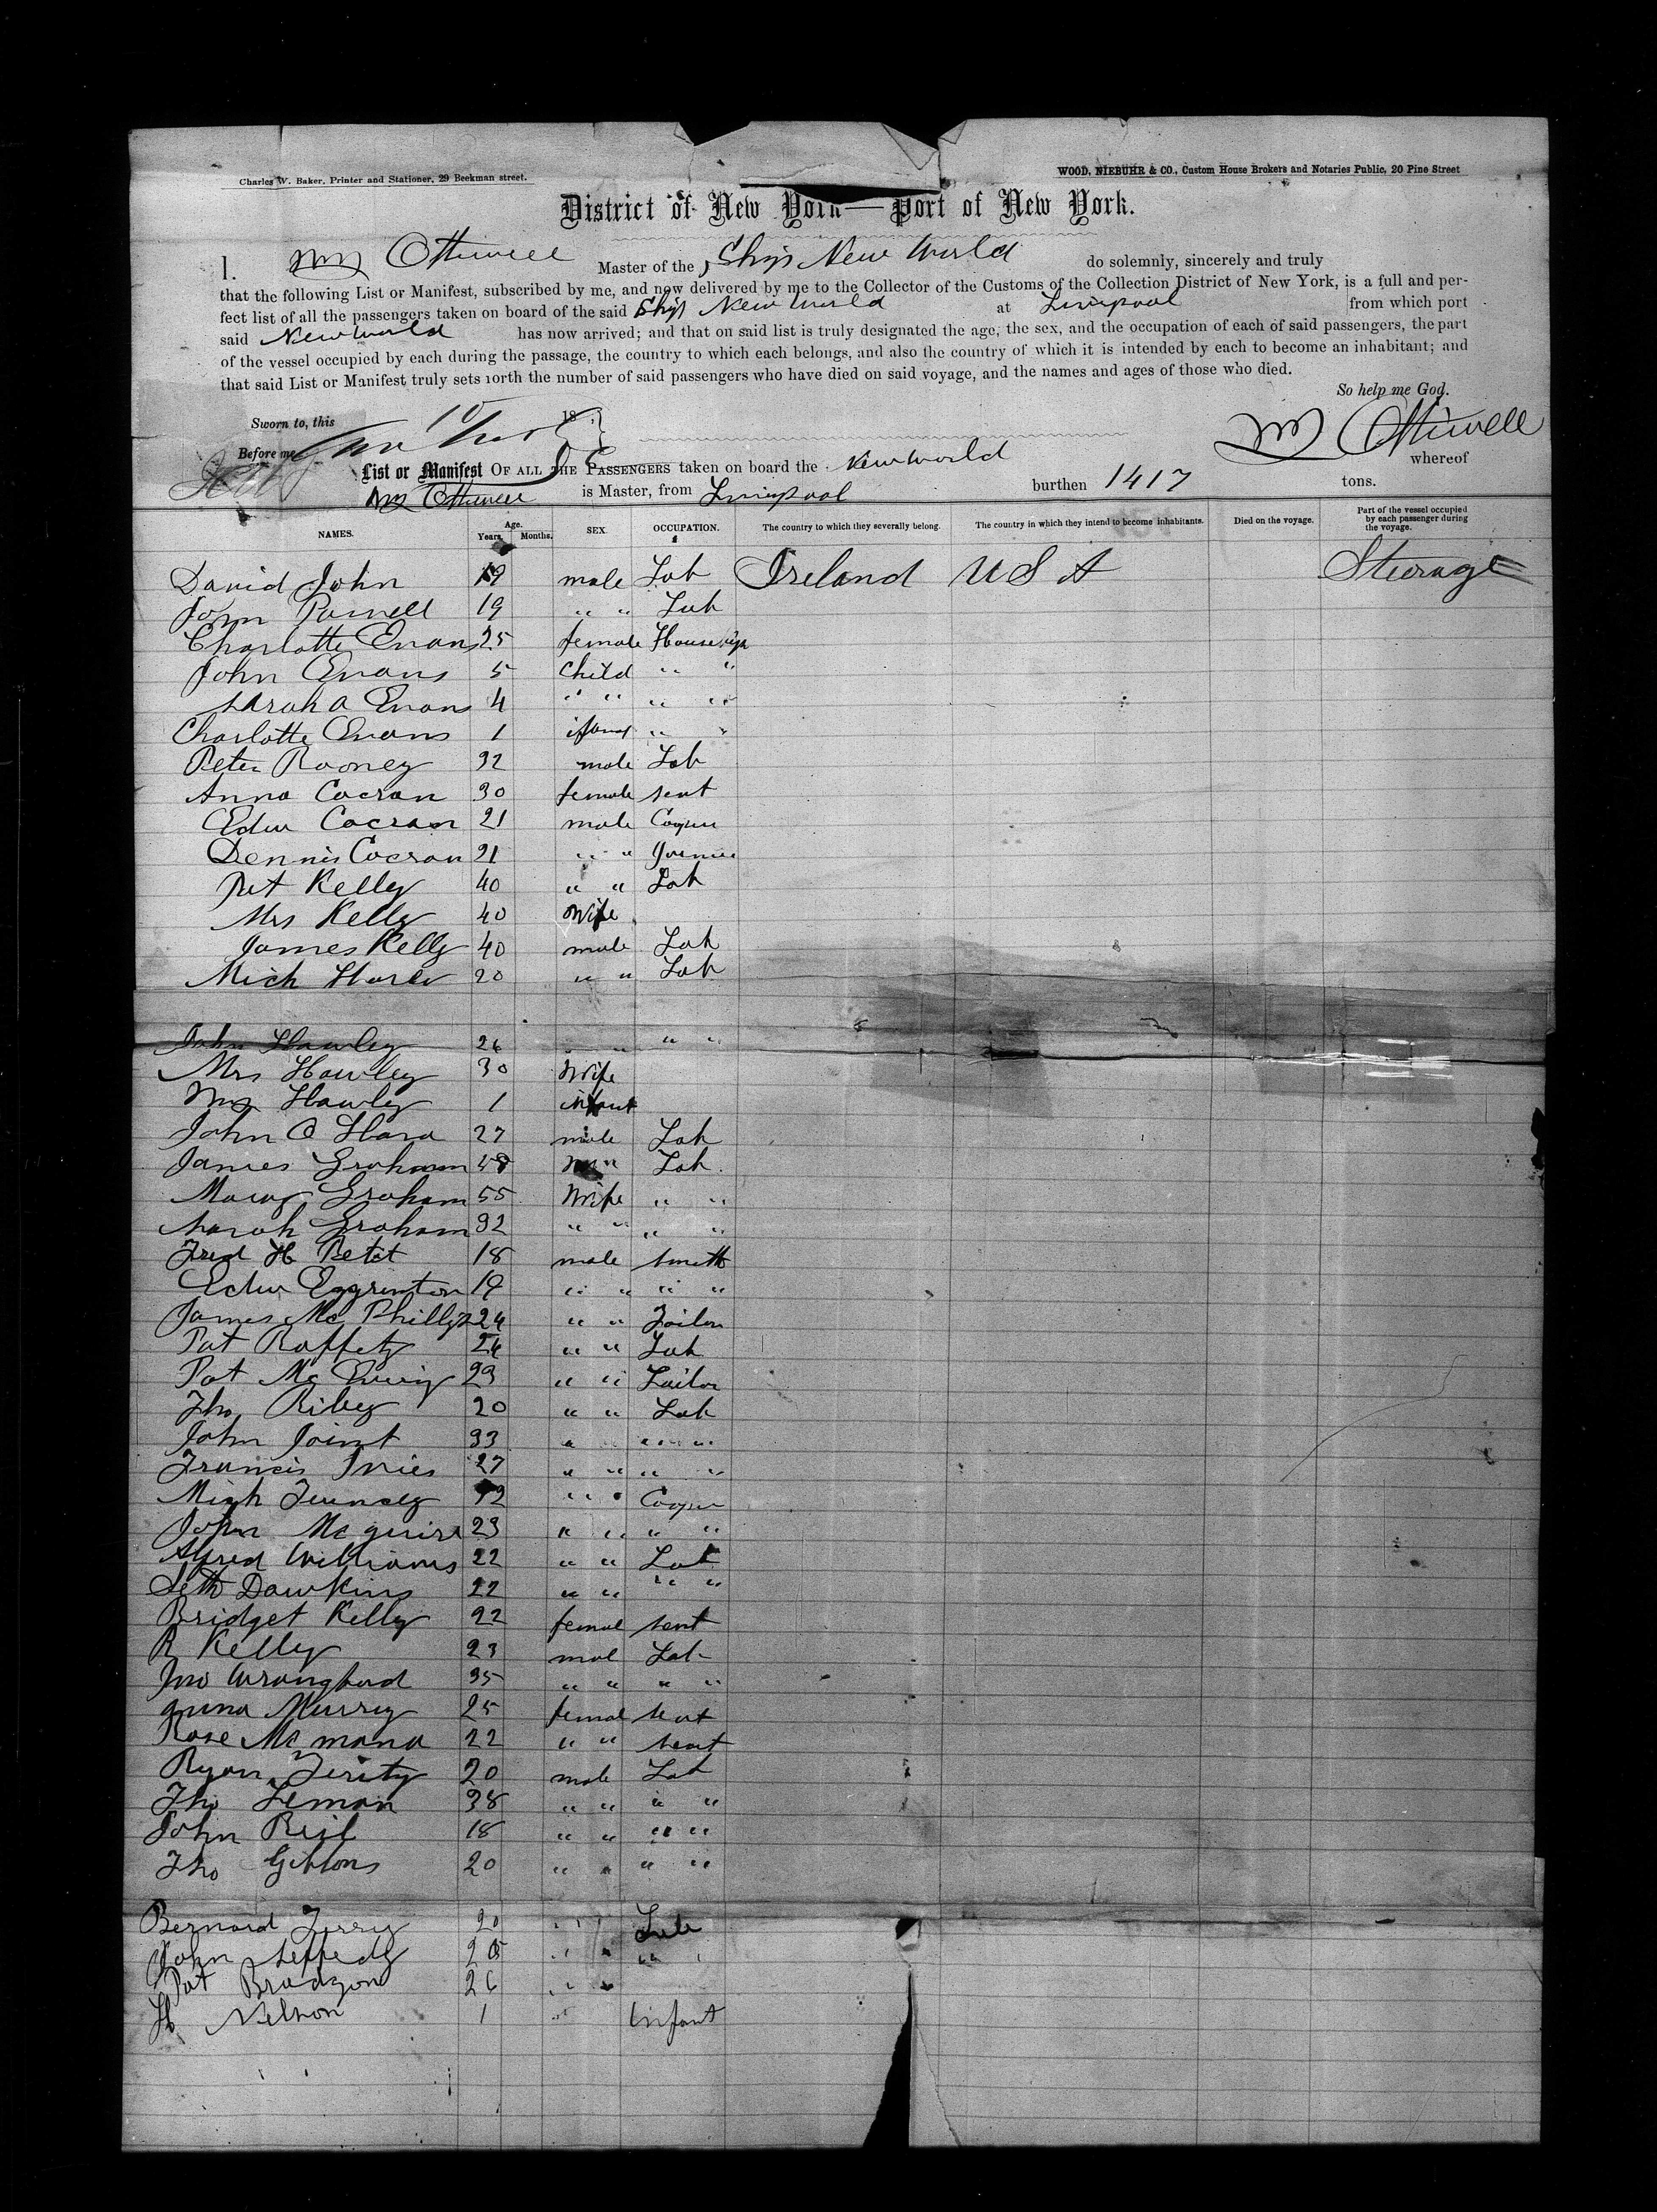 Charles W. Baker, Printer and Stationer, 29 Beekman street.
WOOD, NIEBUHR & CO., Custom House Brokers and Notaries Public, 20 Pine Street
District of New York—Port of New York.
I. Wm Ottiwell Master of the Ship New World do solemnly, sincerely and truly
that the following List or Manifest, subscribed by me, and now delivered by me to the Collector of the Customs of the Collection District of New York, is a full and per-
fect list of all the passengers taken on board of the said Ship New World at Liverpool from which port
said New World has now arrived; and that on said list is truly designated the age, the sex, and the occupation of each of said passengers, the part
of the vessel occupied by each during the passage, the country to which each belongs, and also the country of which it is intended by each to become an inhabitant; and
that said List or Manifest truly sets forth the number of said passengers who have died on said voyage, and the names and ages of those who died.
So help me God.
Sworn to, this 18
Before me
Wm Ottiwell
List or Manifest OF ALL THE PASSENGERS taken on board the New World whereof
Wm Ottiwell is Master, from Liverpool burthen 1417 tons.
NAMES. Age. Years. Months. SEX. OCCUPATION. The country to which they severally belong. The country in which they intend to become inhabitants. Died on the voyage. Part of the vessel occupied by each passenger during the voyage.
David John 19 male Lab Ireland U S A Steerage
John Parnell 19 " " Lab
Charlotte Evans 25 female
John Evans 5 child " "
Sarah A Evans 4 " " " "
Charlotte Evans 1 " "
Peter Rooney 32 male Lab
Anna Cocran 30 female
Edw Cocran 21 male
Dennis Cocran 21 " "
Pat Kelly 40 " " Lab
Mrs Kelly 40 Wife
James Kelly 40 male Lab
Mich 20 " " Lab
John Hawley 26 " " " "
Mrs Hawley 30 Wife
Hawley 1 infant
John O Hara 27 male Lab
James Graham Lab
Mary Graham 55 Wife " "
Sarah Graham 32 " " " "
Fred H 18 male Smith
Edw " " " "
James Mc Phillips 24 " " Tailor
Pat Raffety 24 " " Lab
Pat Mc 23 " " Tailor
Tho Riley 20 " " Lab
John Joint 33 " " " "
Francis 27 " " " "
Mich " " Cooper
John McGuire 23 " " " "
Alfred Williams 22 " " Lab
Seth Dawkins 22 " " " "
Bridget Kelly 22 femal
R Kelly 23 mal Lab
Jno 35 " " " "
Anna Murry 25 femal
Rose Mc mana 22 " "
Ryan 20 male Lab
Tho Leman 38 " " " "
John 18 " " " "
Tho Gibbons 20 " " " "
Bernard 20 " " Lab
John " " " "
Pat 26 " "
H Nelson 1 " infant